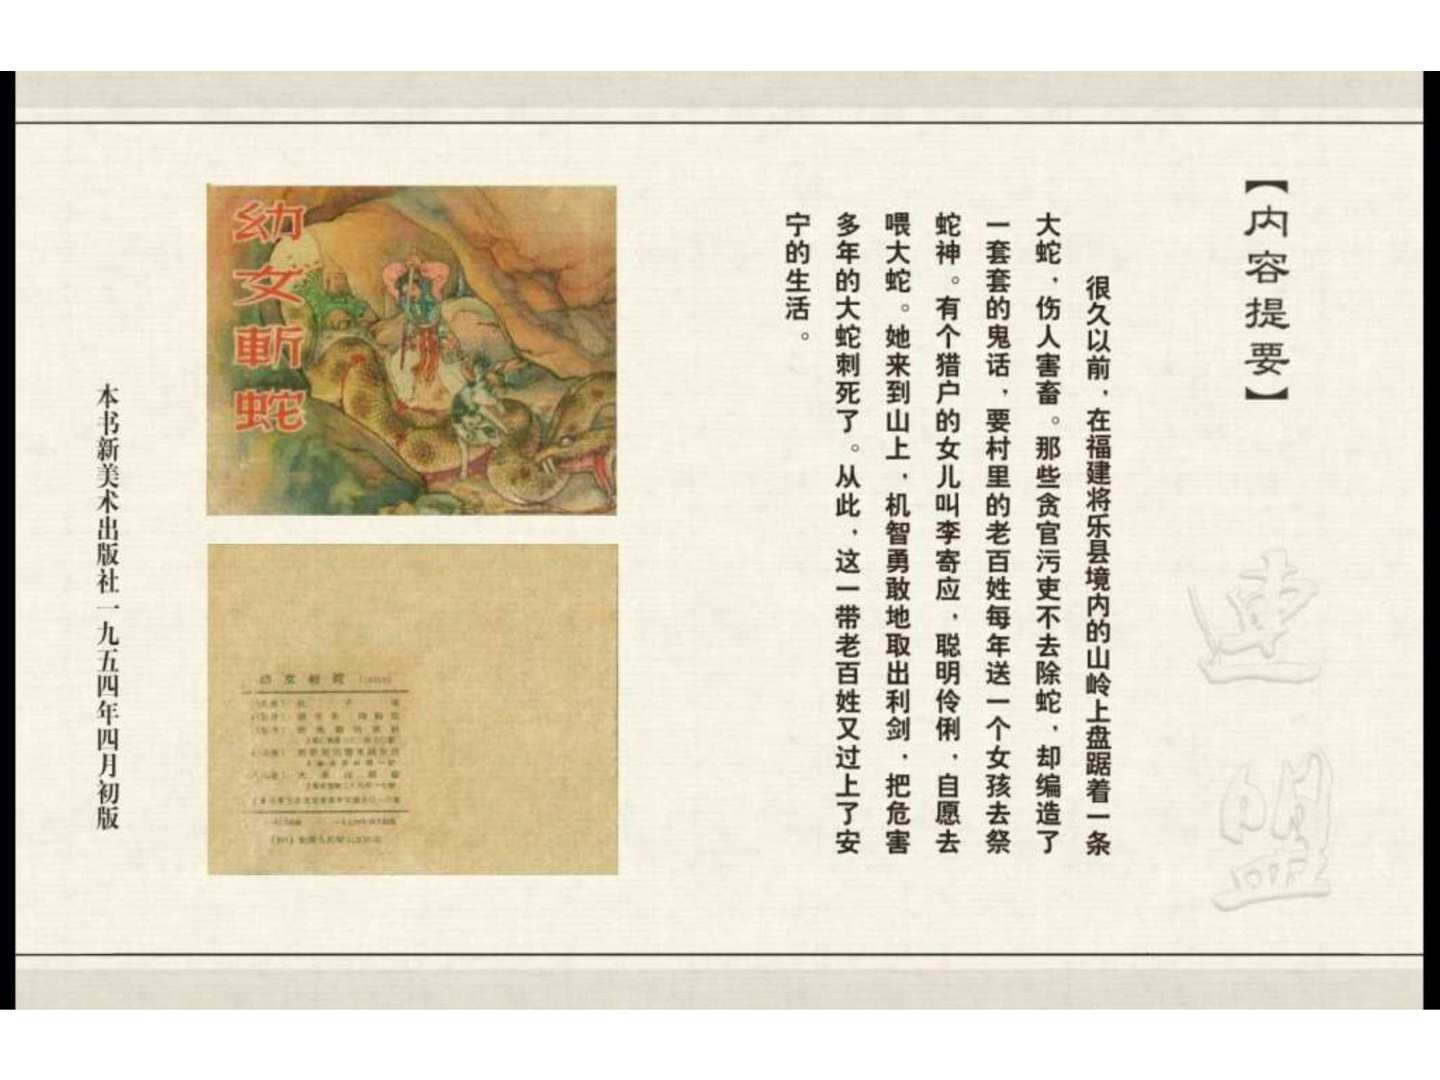 【内容提要】
很久以前，在福建将乐县境内的山岭上盘踞着一条
大蛇，伤人害畜。那些贪官污吏不去除蛇，却编造了
一套套的鬼话，要村里的老百姓每年送一个女孩去祭
蛇神。有个猎户的女儿叫李寄应，聪明伶俐，自愿去
喂大蛇。她来到山上，机智勇敢地取出利剑，把危害
多年的大蛇刺死了。从此，这一带老百姓又过上了安
宁的生活。
连盟
幼女斬蛇
幼女斬蛇
本书新美术出版社一九五四年四月初版